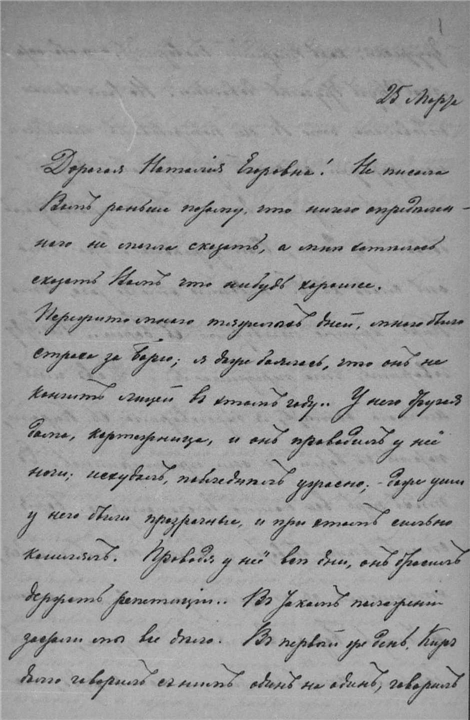 1
25 Марта
Дорогая Наталія Егоровна! Не писала
Вамъ раньше потому, что ничего опредѣлен-
наго не могла сказать, а мнѣ хотѣлось
сказать Вамъ что нибудь хорошее.
Пережито много тяжелыхъ дней, много было
страха за Борю; я даже боялась, что онъ не
кончитъ лицей въ этомъ году. У него другая
дама, картежница, и онъ проводилъ у неё
ночи; исхудалъ, поблѣднѣлъ ужасно; даже уши
у него были прозрачные, и при этомъ сильно
кашлялъ. Проводя у неё всѣ дни, онъ бросилъ
держать репетиціи.. Въ такомъ положеніи
застали мы все дѣло. Въ первый же день, Киръ
долго говорилъ съ нимъ одинъ на одинъ; говорилъ